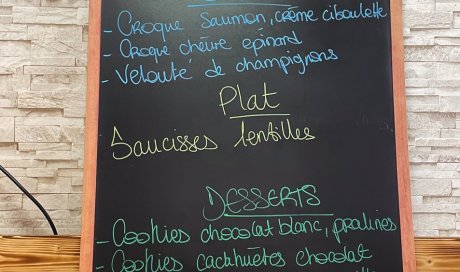 - Croque Saumon, crème ciboulette
- Croque chèvre épinard
- Velouté de champignons
Plat
Saucisses lentilles
DESSERTS
- Cookies chocolat blanc, pralines
- Cookies cacahuètes chocolat